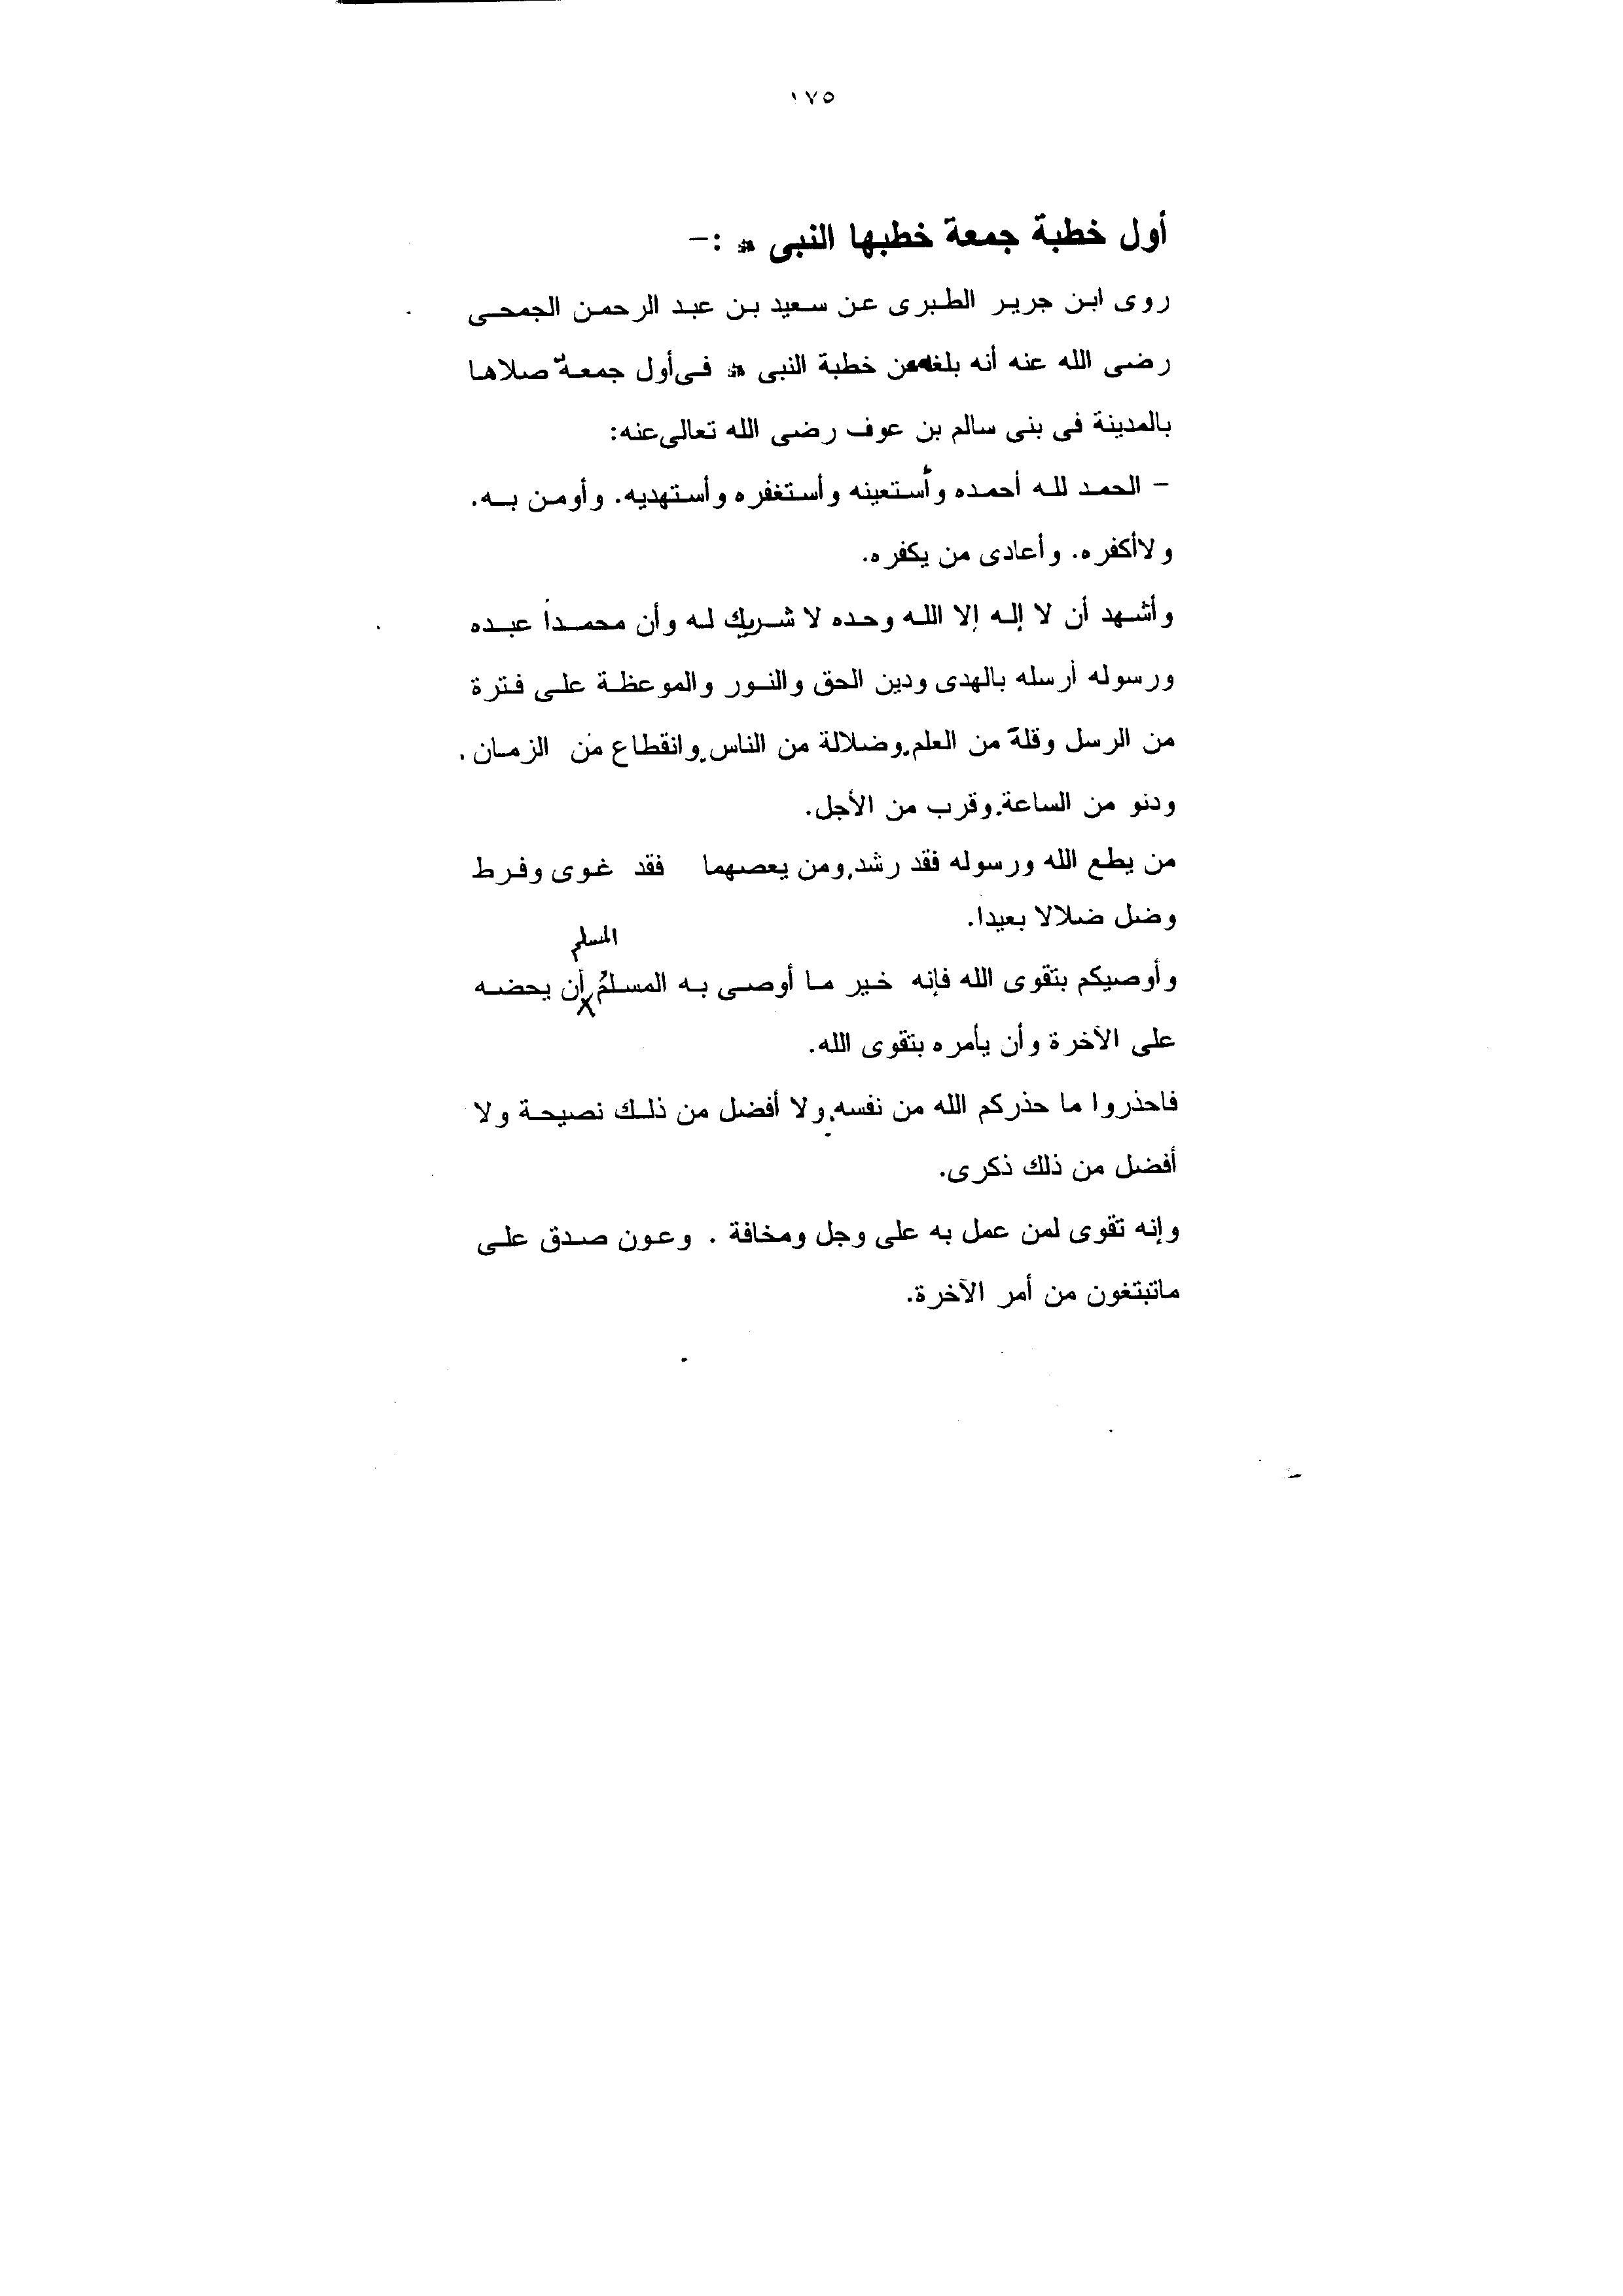 ١٧٥
أول خطبة جمعة خطبها النبى ﷺ :-
روى ابن جرير الطبرى عن سعيد بن عبد الرحمن الجمحى
رضى الله عنه أنه بلغه عن خطبة النبى ﷺ فى أول جمعة صلاها
بالمدينة فى بنى سالم بن عوف رضى الله تعالى عنه:
- الحمد لله أحمده وأستعينه وأستغفره وأستهديه. وأومن به.
ولاأكفره. وأعادى من يكفره.
وأشهد أن لا إله إلا الله وحده لا شريك له وأن محمداً عبده
ورسوله أرسله بالهدى ودين الحق والنور والموعظة على فترة
من الرسل وقلة من العلم. وضلالة من الناس. وانقطاع من الزمان .
ودنو من الساعة. وقرب من الأجل.
من يطع الله ورسوله فقد رشد. ومن يعصهما فقد غوى وفرط
وضل ضلالا بعيدا.
المسلم
وأوصيكم بتقوى الله فإنه خير ما أوصى به المسلمُ أن يحضه
على الآخرة وأن يأمره بتقوى الله.
فاحذروا ما حذركم الله من نفسه. ولا أفضل من ذلك نصيحة ولا
أفضل من ذلك ذكرى.
وإنه تقوى لمن عمل به على وجل ومخافة . وعون صدق على
ماتبتغون من أمر الآخرة.